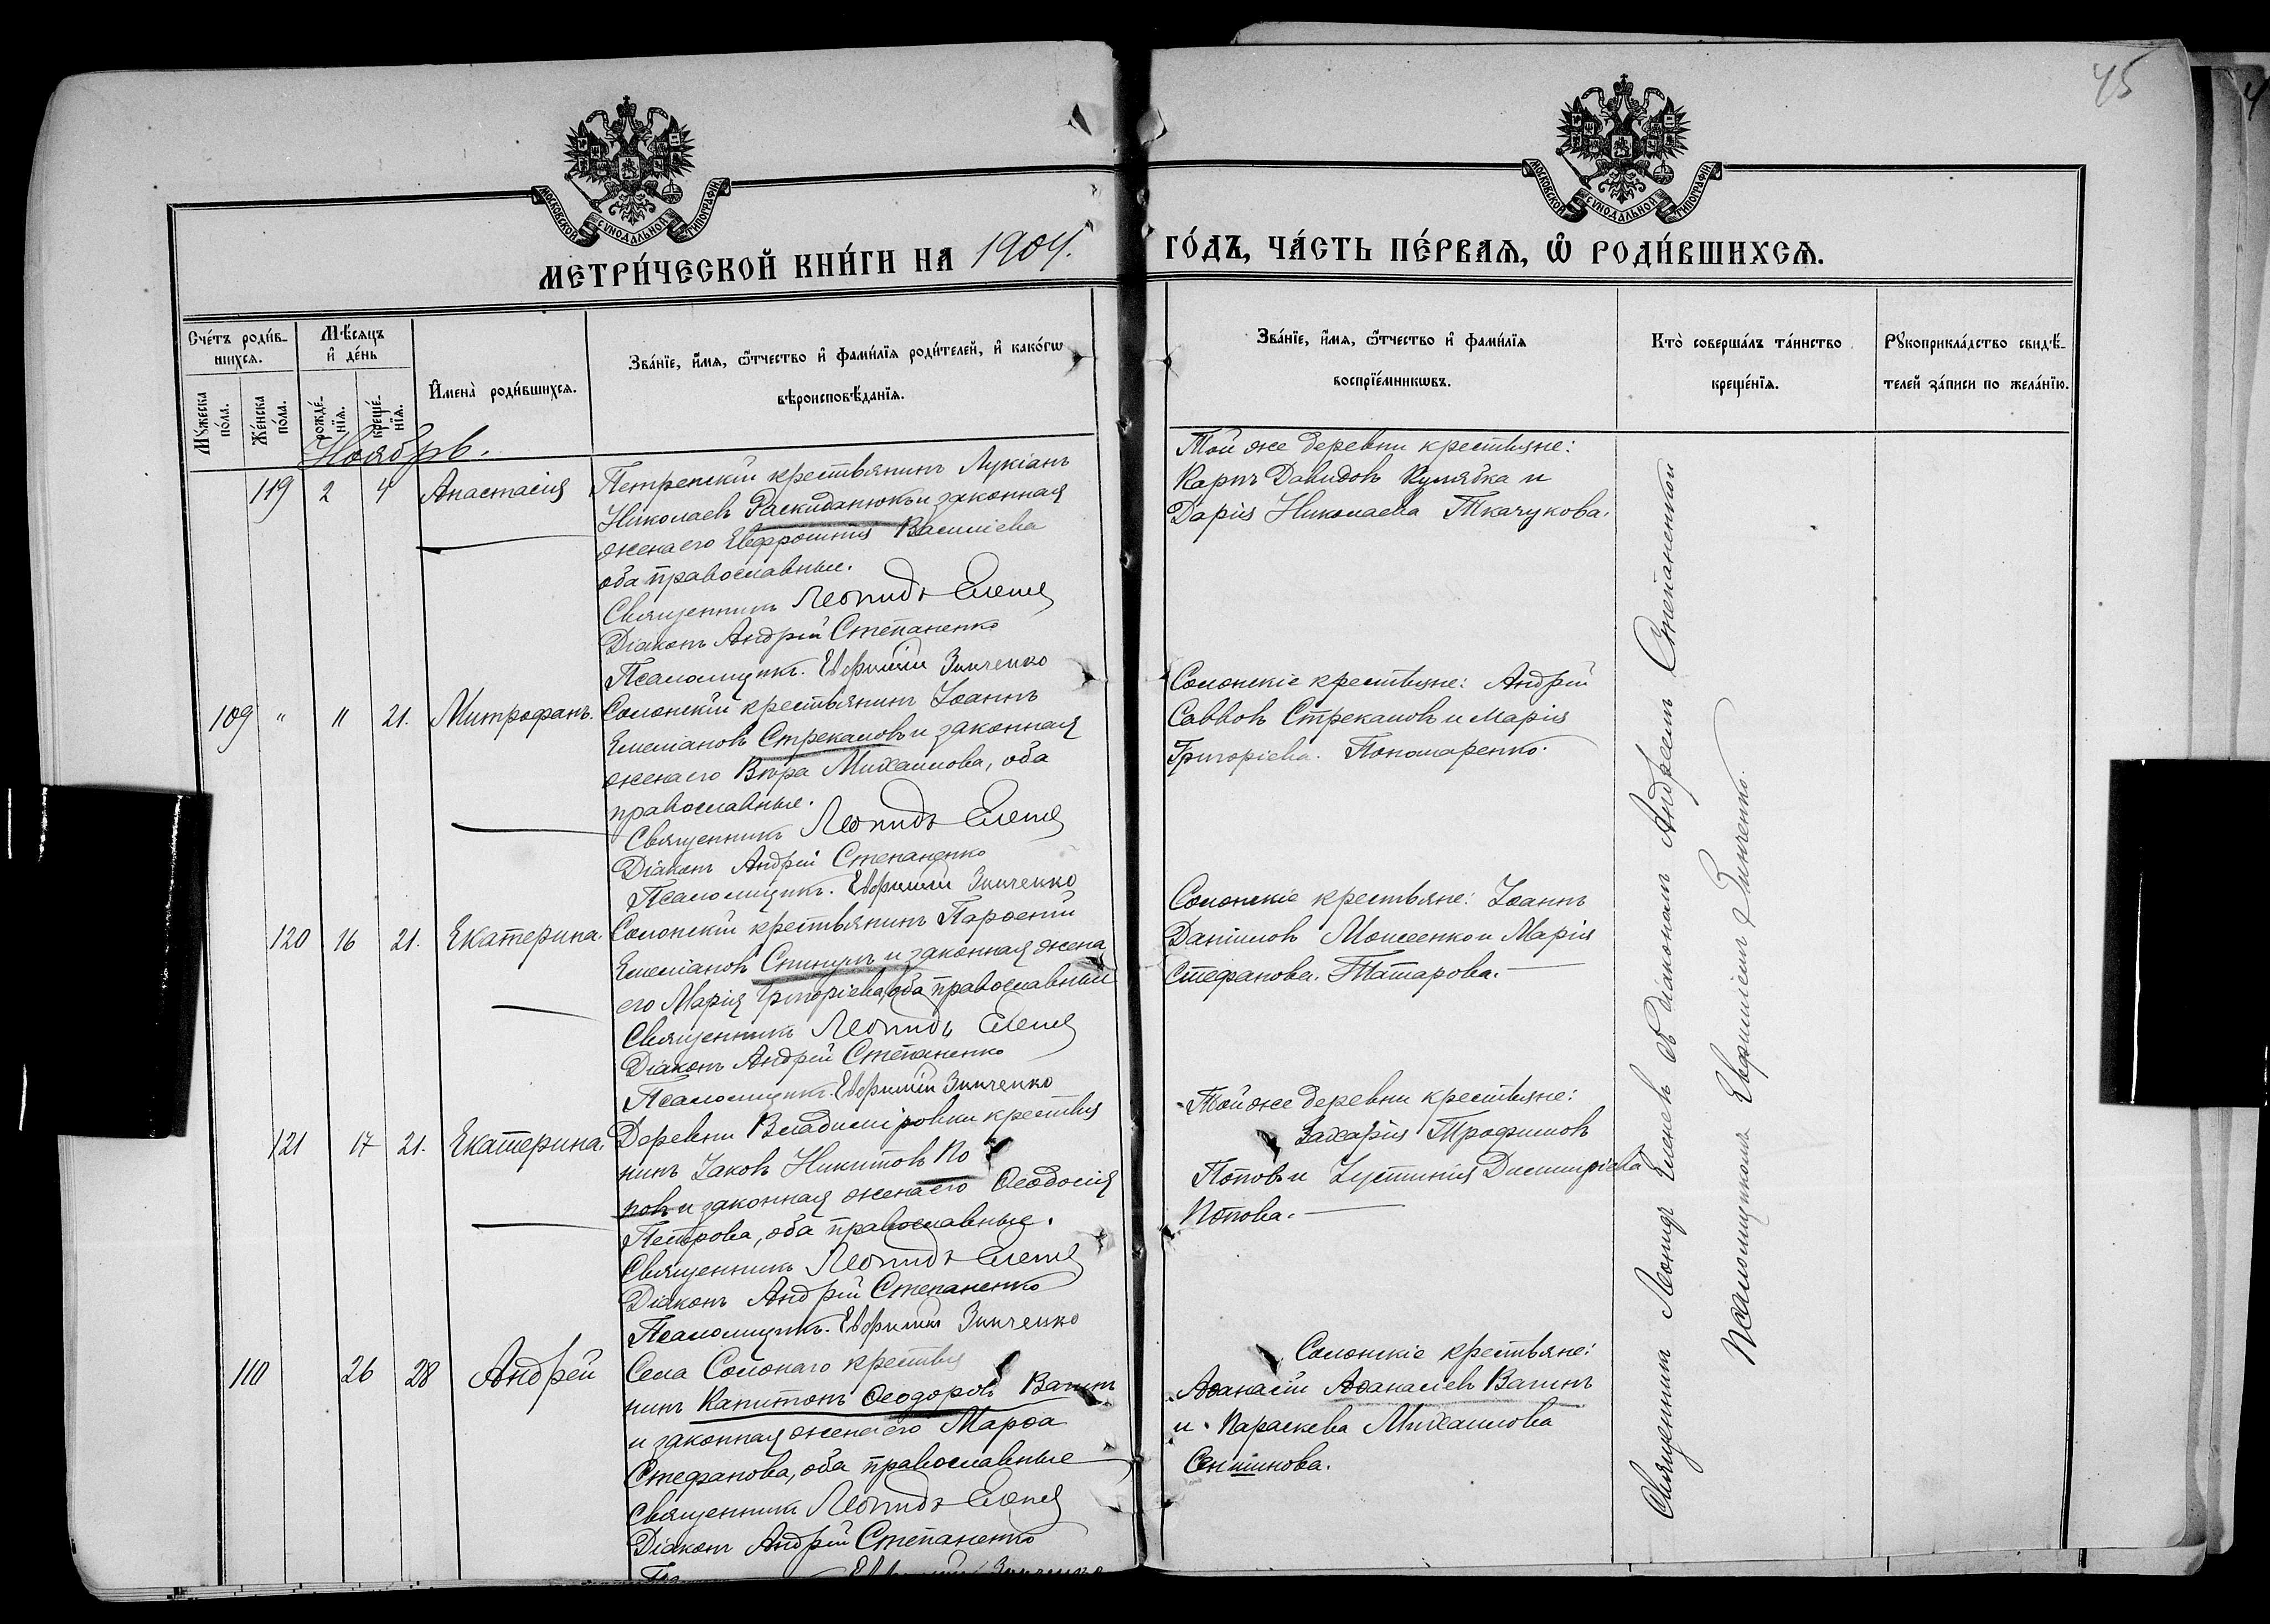 45
МОСКОВСКОЙ СУНОДАЛЬНОЙ ТИПОГРАФІИ
МОСКОВСКОЙ СУНОДАЛЬНОЙ ТИПОГРАФІИ
МЕТРИ́ЧЕСКОЙ КНИ́ГИ НА 1904. ГО́ДЪ, ЧА́СТЬ ПЕ́РВАЯ, Ѡ҆ РОДИ́ВШИХСѦ.
Сче́тъ роди́в-
шихсѧ.
Мꙋ́жеска по́ла.
Же́нска по́ла.
Мѣ́сѧцъ и҆ де́нь
рожде́-нїѧ.
креще́-нїѧ.
И҆мена̀ роди́вшихсѧ.
Зва́нїе, и҆́мѧ, ѻ҆́тчество и҆ фами́лїѧ роди́телей, и҆ како́гѡ
вѣроисповѣ́данїѧ.
Зва́нїе, и҆́мѧ, ѻ҆́тчество и҆ фами́лїѧ
воспрїе́мникѡвъ.
Кто̀ соверша́лъ та́инство
креще́нїѧ.
Рꙋкоприкла́дство свидѣ́-
телей за́писи по жела́нїю.
Ноябрь.
119 2 4 Анастасія
Петрепскій крестьянинъ Лукіанъ
Николаевъ Раскиданюкъ и законная
жена его Евфросинія Василіева
оба православные.
Священникъ Леонидъ
Діаконъ Андрей Степаненко
Псаломщикъ. Евфимій Зинченко
Той же деревни крестьяне:
Карпъ Давидовъ Кулябка и
Дарія Николаева Ткачукова.
109 " 11 21. Митрофанъ.
Солонскій крестьянинъ Іоаннъ
Емеліановъ Стрекаловъ и законная
жена его Вѣра Михаилова, оба
православные.
Священникъ Леонидъ
Діаконъ Андрей Степаненко
Псаломщикъ. Евфимій Зинченко
Солонскіе крестьяне: Андрей
Саввовъ Стрекаловъ и Марія
Григоріева. Пономаренко.
120 16 21. Екатерина.
Солонскій крестьянинъ Парѳеній
Емеліановъ и законная жена
его Марія Григоріева, оба православные
Священникъ Леонидъ
Діаконъ Андрей Степаненко
Псаломщикъ. Евфимій Зинченко
Солонскіе крестьяне: Іоаннъ
Даніиловъ Моисеенко и Марія
Стефанова. Татарова.
121 17 21. Екатерина.
Деревни Владиміровки крестья
нинъ Іаковъ Никитовъ По
повъ и законная жена его Ѳеодосія
Петрова, оба православные.
Священникъ Леонидъ
Діаконъ Андрей Степаненко
Псаломщикъ. Евфимій Зинченко
Той же деревни крестьяне:
Захарія Трофимовъ
Поповъ и Іустинія Димитріева
Попова.
110 26 28 Андрей
Села Солонаго крестья
нинъ Капитонъ Ѳеодоровъ Вагинъ
и законная жена его Марѳа
Стефанова, оба православные
Священникъ Леонидъ
Діаконъ Андрей Степаненко
Евфимій Зинченко
Солонскіе крестьяне:
Аѳанасій Аѳанасіевъ Вагинъ
и Параскева Михаилова
Священникъ Леонидъ съ діакономъ Андреемъ Степаненкой
псаломщикомъ Евфиміемъ Зинченко.